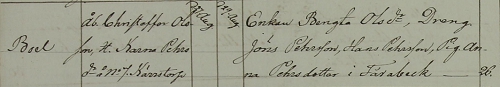 Boel
åb. Christoffer Ols
son, H. Karna Pehrs
dr å No 7. Kärrstorp
Enkan Bengta Olsdr, Dreng
Jöns Pehrsson, Hans Pehrsson, Pig. An-
na Pehrsdotter i Färabeck — 26.